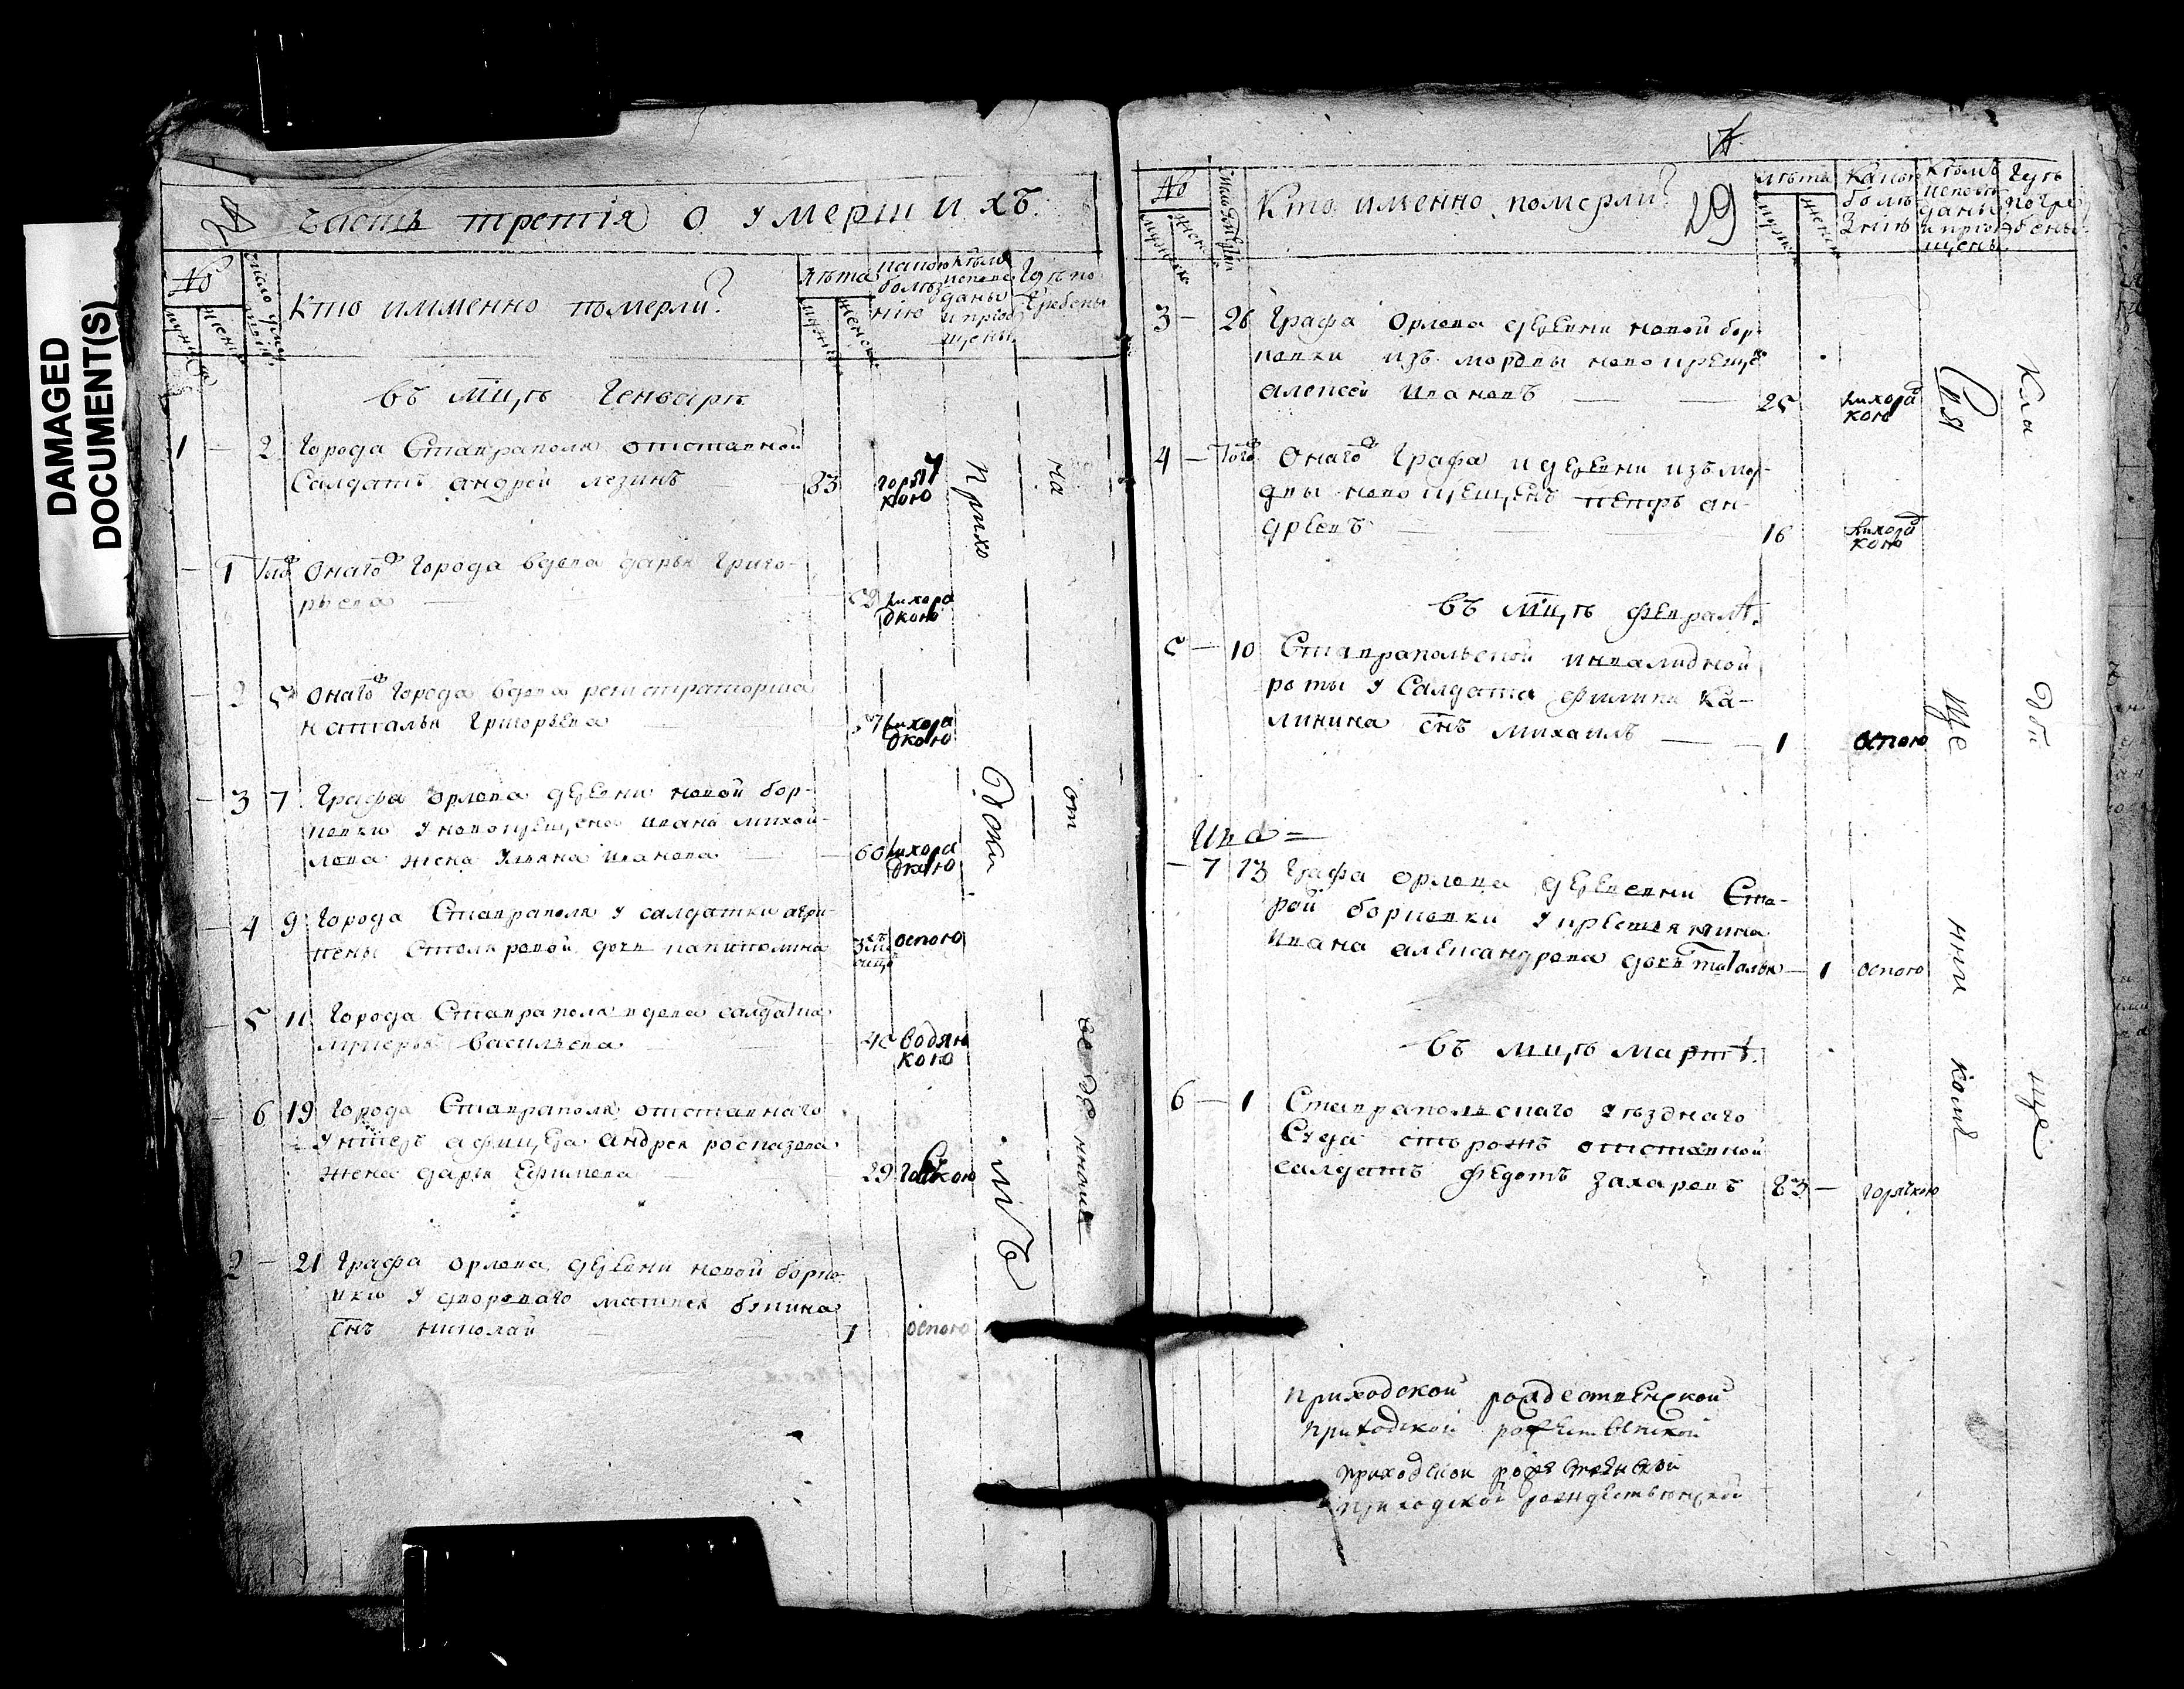 DAMAGED
DOCUMENT(S)
28
Часть третія о умершихъ
№
мужеска
женска
Кто имменно померли?
Лѣта
мужеска
женска
какою болѣзнію
Кѣмъ исповѣданы и пріобщены
Гдѣ погребены
въ мцѣ Генварѣ
1 — 2 Города Ставраполя отставной
Салдатъ андрей лезинъ — 83 горячкою
— 1 Того Онаго города вдова дарья Григо-
рьева — лихорадкою
— 2 5 Онаго города вдова регистраторша
наталья Григорьева — 57 лихорадкою
— 3 7 Графа орлова деревни новой бор-
ковки у новокрещена ивана михай-
лова жена Ульяна иванова — 60 лихорадкою
— 4 9 Города Ставраполя у салдатки агри-
пены столяровой дочь капитолина оспою
— 5 11 Города Ставраполя вдова салдатка
лукерья васильева — 45 водянкою
— 6 19 Города Ставраполя отставнаго
Унтеръ афицера андрея
жена дарья Ефимова — 29
2 — 21 Графа орлова деревни новой борко-
вки у двороваго матвея букина
снъ николай — 1 оспою
приходскимъ
на отведенномъ
29
№
мужеска
женска
Кто именно померли?
лѣта
мужеска
женска
Какою болѣзнію
Кѣмъ исповѣданы и пріобщены
Гдѣ погребены
3 — 26 Графа Орлова деревни новой бор-
ковки изъ мордвы новокреще
алексей Ивановъ — 25 лихорадкою
4 — Того Онаго Графа и деревни изъ мор-
двы новокрещенъ петръ ан-
дреевъ — 16 лихорадкою
въ мцѣ февралѣ
5 — 10 Ставрапольской инвалидной
роты у Салдата филипа Ка-
линина снъ михаилъ — 1 оспою
— 7 13 Графа орлова деревни Ста-
рой борковки у крестьянина
ивана александрова дочь наталья — 1 оспою
въ мцѣ мартѣ
6 — 1 Ставрапольскаго уѣзднаго
Суда сторожъ отставной
салдатъ федотъ захаровъ 83 — горячкою
Священникомъ
Кладбище
приходской рождественской
приходской рождественской
приходской рождественской
приходской рождественской